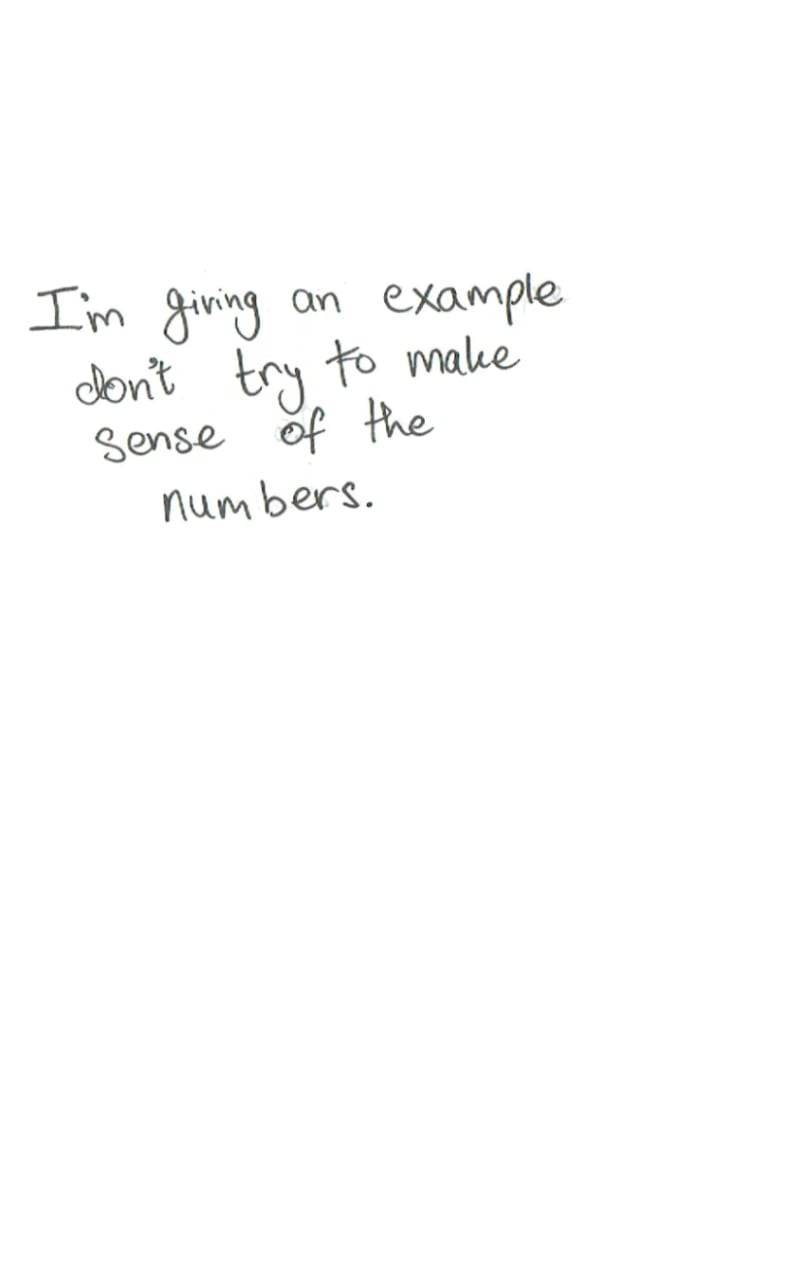 I'm giving an example
don't try to make
sense of the
numbers.